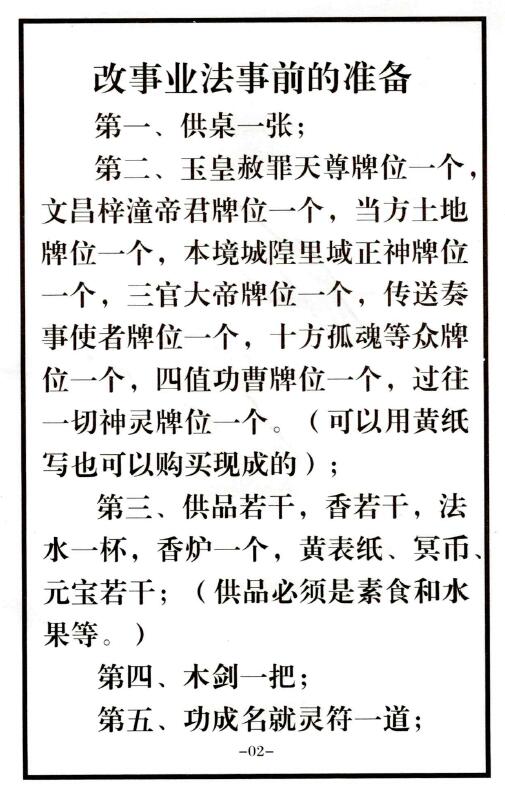 改事业法事前的准备
第一、供桌一张；
第二、玉皇赦罪天尊牌位一个，
文昌梓潼帝君牌位一个，当方土地
牌位一个，本境城隍里域正神牌位
一个，三官大帝牌位一个，传送奏
事使者牌位一个，十方孤魂等众牌
位一个，四值功曹牌位一个，过往
一切神灵牌位一个。（可以用黄纸
写也可以购买现成的）；
第三、供品若干，香若干，法
水一杯，香炉一个，黄表纸、冥币、
元宝若干；（供品必须是素食和水
果等。）
第四、木剑一把；
第五、功成名就灵符一道；
-02-